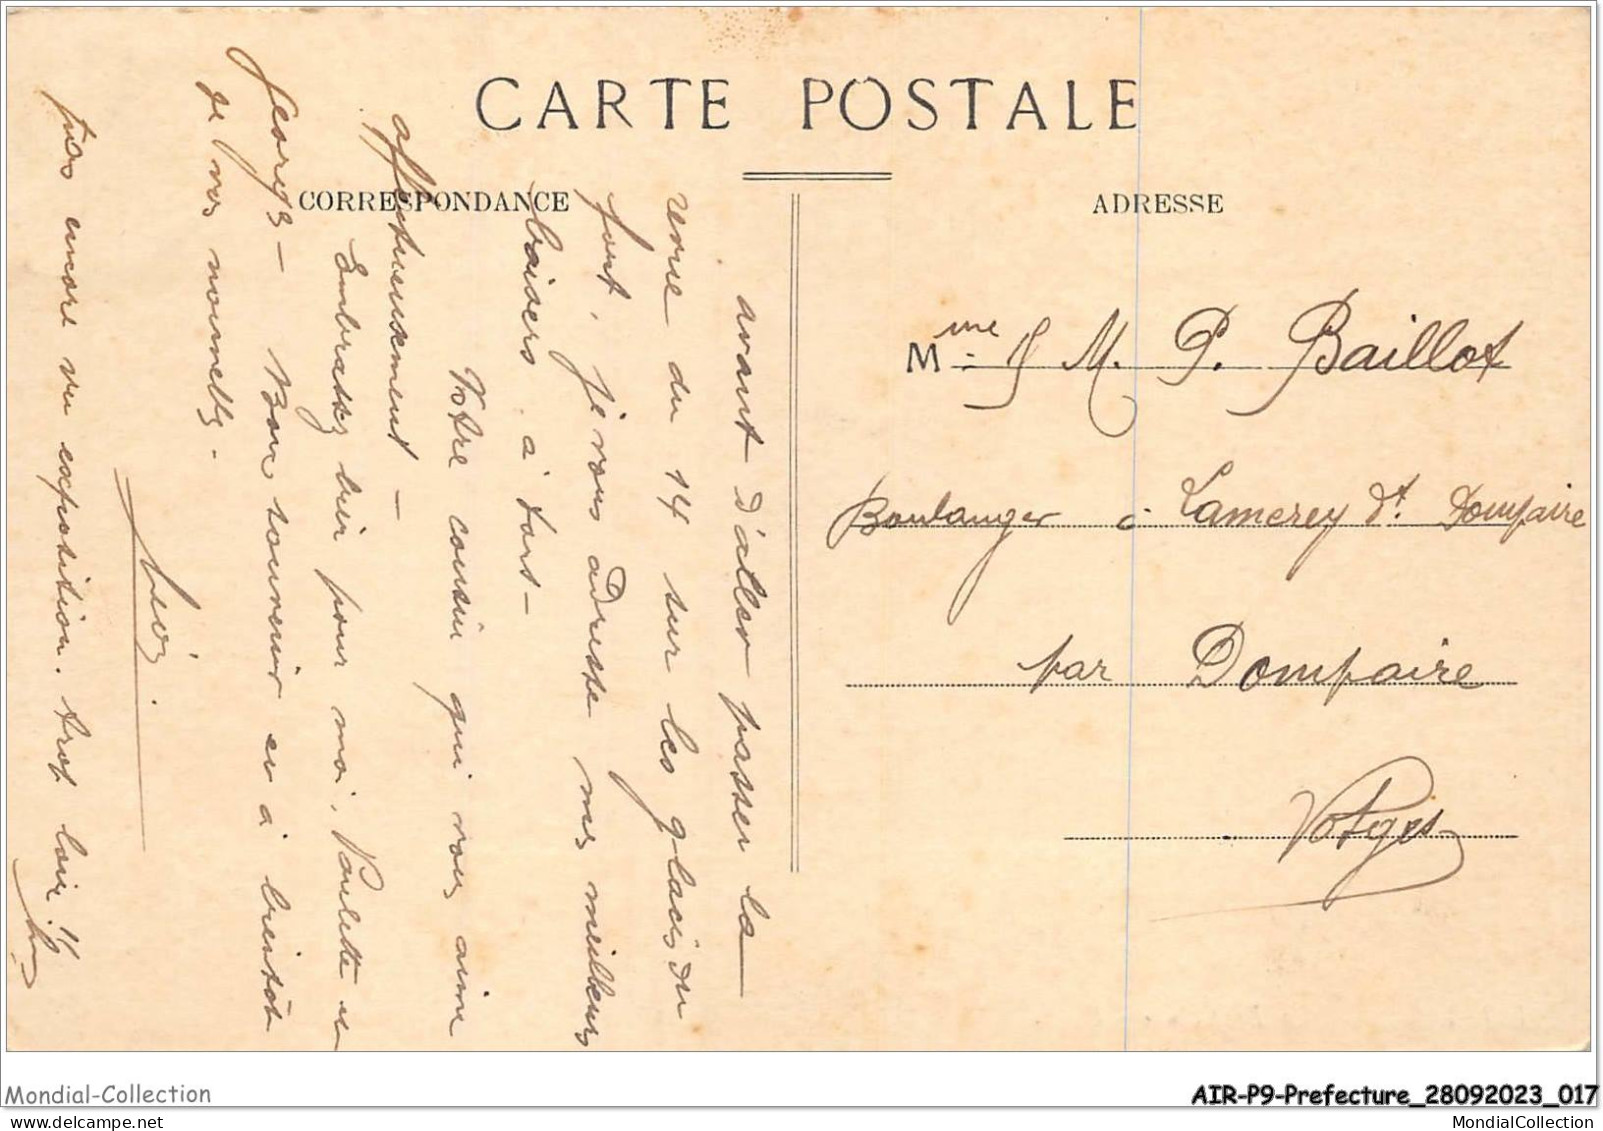 CARTE POSTALE
CORRESPONDANCE
ADRESSE
avant d'aller passer la
revue du 14 sur les glacis du
fort, je vous adresse mes meilleurs
baisers à tous –
Votre cousin qui vous aime
affectueusement –
Embrassez bien pour moi, Paulette et
Georges – Bon souvenir et à bientôt
de vos nouvelles.
pas encore vu exposition. trop loin !!
Mme & M. P. Baillot
Boulanger à Lamerey dt. Dompaire
par Dompaire
Vosges
Mondial-Collection
AIR-P9-Prefecture_28092023_017
MondialCollection